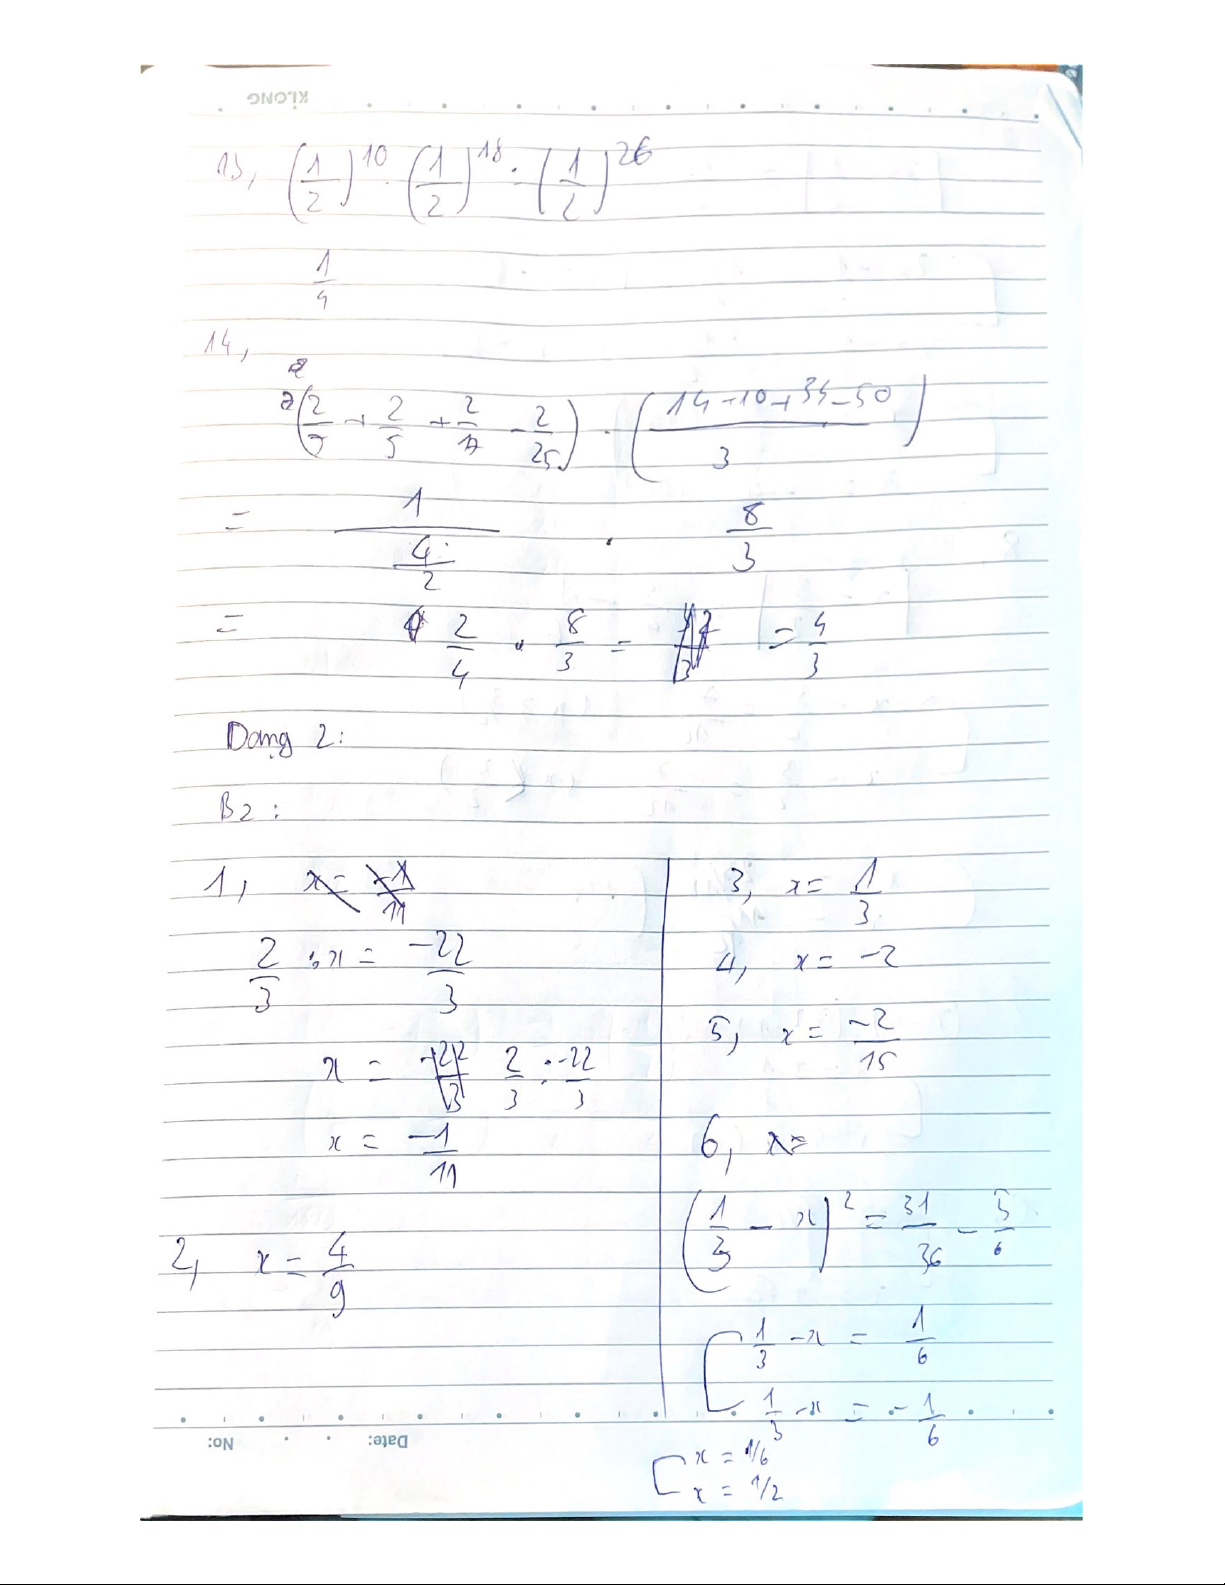 KLONG
13, (1/2)^10 . (1/2)^18 : (1/2)^26
1/4
14,
2(2/7 + 2/5 + 2/17 - 2/25) . ((14-10+34-50)/3)
= 1/(4/2) . 8/3
= 2/4 . 8/3 = = 4/3
Dạng 2:
B2:
1, x = -1/11
2/3 : x = -22/3
x = 2/3 : -22/3
x = -1/11
2, x = 4/9
3, x = 1/3
4, x = -2
5, x = -2/15
6, x=
(1/3 - x)^2 = 31/36 - 5/6
[ 1/3 - x = 1/6
1/3 - x = -1/6
[ x = 1/6
x = 1/2
No: Date: